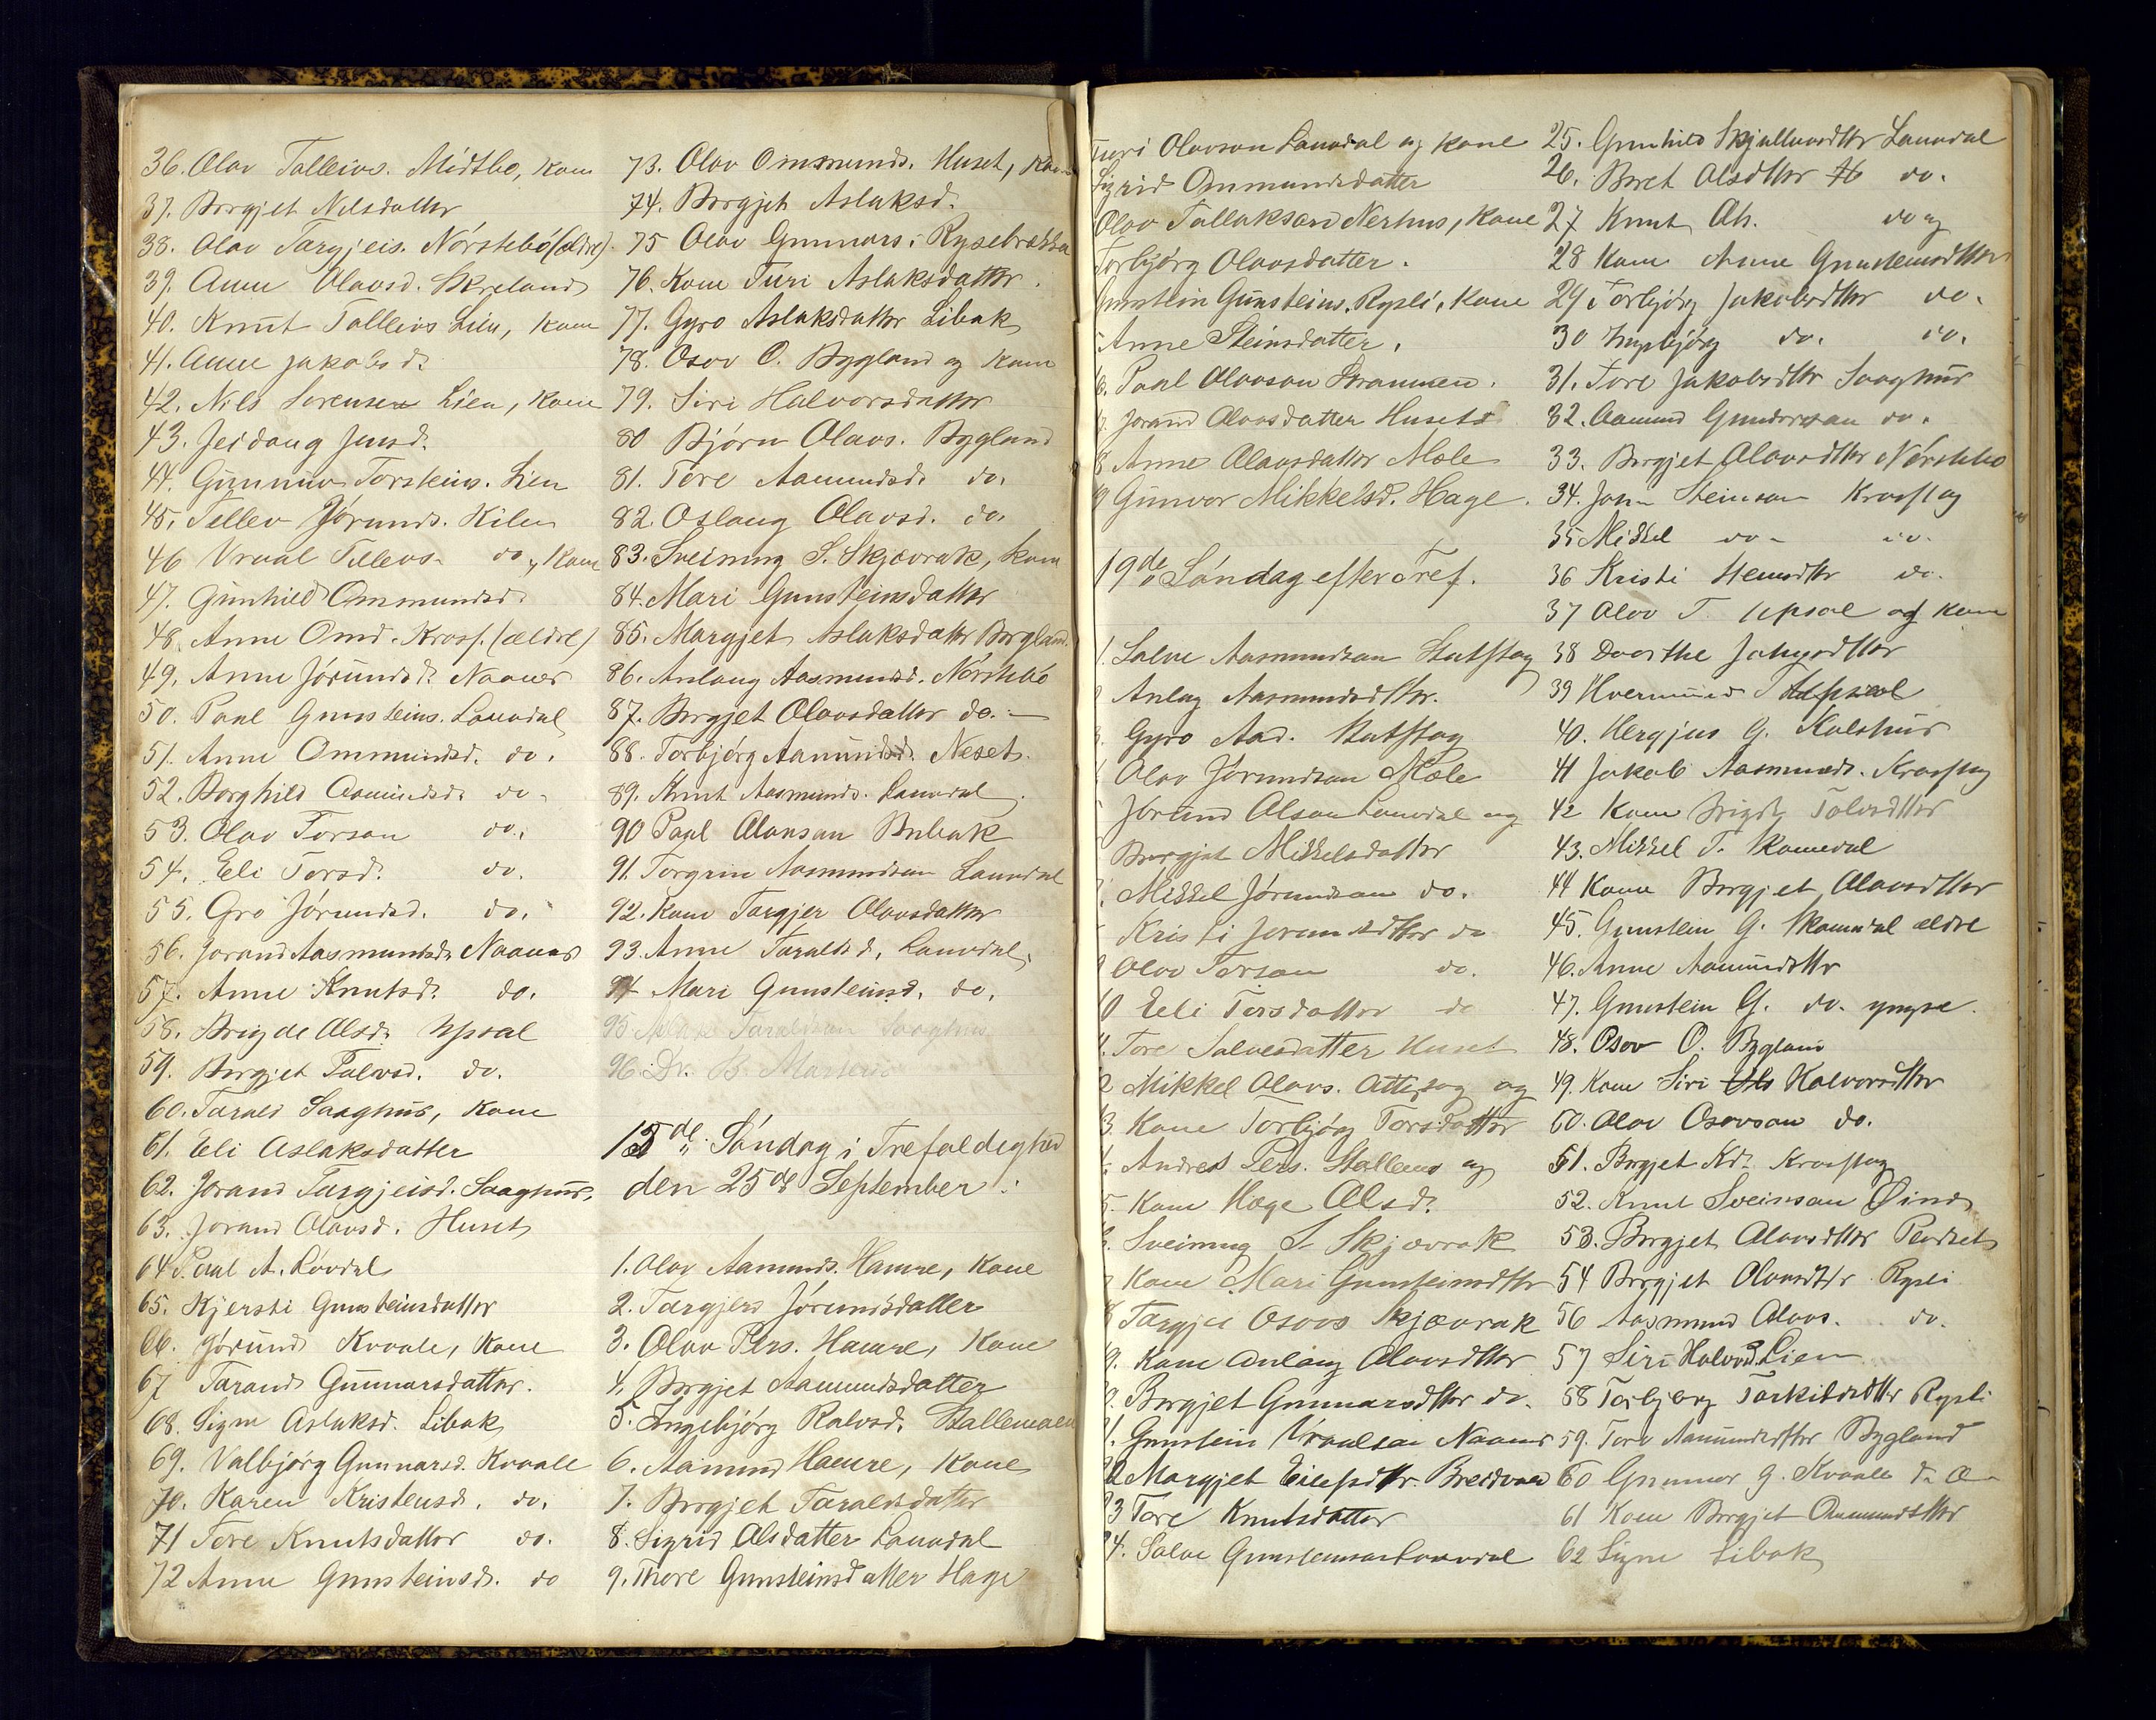 36. Olav Talleivs. Midtbo, Kone
37. Borgjet Nilsdatter
38. Olav Targjeis. Nórstebó (ældre)
39. Anne Olavsd. Skreland
40. Knut Talleivs Lien, Kone
41. Anne Jakobsd.
42. Nils Sorensen Lien, Kone
43. Jeidoug Jensd.
44. Gunnuv Torsteins. Lien
45. Tellev Jórunds. Kilen
46 Vraal Tellevs. do, Kone
47. Gunhild Ommundsd.
48. Anne Omd. Krosf. (ældre)
49. Anne Jórundsd. Naanes
50. Paal Gunsteins. Lauvdal
51. Anne Ommundsd. do.
52. Borghild Aamundsd. do.
53. Olav Torson do.
54. Eli Torsd. do.
55. Gro Jórundsd. do.
56. Jorand Aasmundsd. Naanes
57. Anne Knutsd. do.
58. Brigde Alsd. Upsal
59. Borgjet Talvsd. do.
60. Tarald Saaghus, Kone
61. Eli Aslaksdatter
62. Jorand Targjeisd. Saaghus.
63. Jorand Olavsd. Huset
64 Paal A. Lóvdal
65. Kjersti Gunsteinsdatter
66. Jórund Kvaale, Kone
67 Tarand Gunnarsdatter.
68. Signe Aslaksd. Libak
69. Valbjórg Gunnarsd. Kvaale
70. Karen Kristensd. do.
71 Tore Knutsdatter do.
72 Anne Gunsteinsd. do
73. Olav Ommunds. Huset, Kone
74. Borgjet Aslaksd.
75 Olav Gunnars. Rysebrække
76. Kone Turi Aslaksdatter.
77. Gyro Aslaksdatter Libak
78. Osov O. Bygland og Kone
79. Siri Halvorsdatter
80 Bjórn Olavs. Bygland
81. Tore Aamundsd. do.
82. Oslaug Olavsd. do.
83. Sveinung S. Skjævrak, Kone
84. Mari Gunsteinsdatter
85. Margjet Aslaksdatter Borgland.
86. Anlaug Aasmundsd. Nórstebó
87. Borgjet Olavsdatter do.
88. Torbjórg Aamundsd. Neset.
89. Knut Aasmunds. Lauvdal.
90 Paal Olavson Bubak
91. Torgrim Aasmundson Lauvdal
92. Kone Targjer Olavsdatter
93. Anne Taraldsd. Lauvdal.
94 Mari Gunsteinsd. do.
95 Taraldson Saaghus
96. Dr. B.
15de Sóndag i Trefoldighed
den 25de September.
1. Olav Aamunds. Hamre, Kone
2. Targjerd Jórundsdatter
3. Olav Pers. Hamre, Kone
4. Borgjet Aamundsdatter
5. Ingebjórg Ralvsd. Stallemoen
6. Aamund Hamre, Kone
7. Borgjet Taraldsdatter
8. Sigrid Alsdatter Lauvdal
9. Thore Gunsteinsdatter Hage
Turi Olavson Lauvdal og Kone
Sigrid Ommundsdatter
Olav Tallakson Nerhus, Kone
Torbjórg Olavsdatter.
Gunstein Gunsteins. Rysli, Kone
Anne Steinsdatter.
Paal Olavson Strammen.
Jorand Olavsdatter Huset
8 Anne Olavsdatter Mole
9 Gunvor Mikkelsd. Hage.
19de Sóndag efter Tref.
1. Salve Aasmundson
Anlag Aasmundsdtter.
Gyro Aad.
Olav Jórundson Mæle
Jórund Alson Lauvdal og
Borgjet Mikkelsdatter
Mikkel Jórundson do.
Kristi Jorundsdtter do
Olav Torson do.
10 Eeli Torsdatter do
Tore Salvesdatter Huset
2 Mikkel Olavs. og
3. Kone Torbjórg Torsdatter
Andres Pers. Stallemo og
5. Kone Hæge Alsd.
Sveinung S. Skjævrak
Kone Mari Gunsteinsdtter
Targjei Osovs Skjævrak
9. Kone Anlaug Olavsdtter
Borgjet Gunnarsdtter do.
1. Gunstein Vraalson Naanes
Margjet Eilefsdtr. Breidvad
23 Tore Knutsdatter
24. Salve Gunsteinson Lauvdal
25. Gunhild Skjullvordtter Lauvdal
26. Beret Alsdtter do.
27 Knut Als. do og
28 Kone Anne Gunsteinsdtter
29 Torbjórg Jakobsdtter do.
30 Ingebjórg do. do.
31. Tore Jakobsdtr Saaghus
32. Aamund Gunderson do.
33. Borgjet Olavsdtter Nórstebo
34. John Steinson Krosstog
35 Mikkel do. do.
36 Kristi Steinsdtr do.
37 Olav T. Upsal og Kone
38 Dorthe
39 Hvermund T Upsal
40. Hergjus G. Kaleshus
41 Jakob Aasmunds. Krosstog
42 Kone Brigde Talvsdtter
43. Mikkel T. Skomedal
44 Kone Borgjet Olavsdtter
45. Gunstein G. Skomedal ældre
46. Anne Aamundsdtr
47. Gunstein G. do. yngre.
48. Osov O. Bygland
49. Kone Siri Halvorsdtter
50. Olav Osovson do.
51. Borgjet Kd. Krosstog
52. Knut Sveinson Öind
53. Borgjet Olavsdtter
54 Borgjet Olavsdtr. Rysli
56 Aasmund Olavs. do.
57 Siri Halvsd. Lien
58 Torbjorg Torkildsdtter Rysli
59. Tore Aamundsdtter Bygland
60 Gunnar G. Kvaale d. Æ
61 Kone Borgjet Ommundsdtter
62 Signe Libak